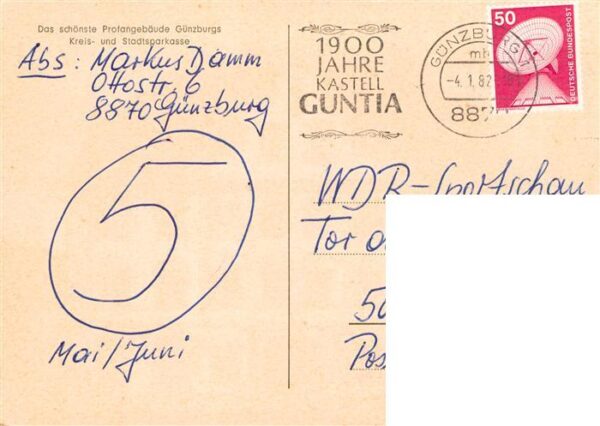 Das schönste Profangebäude Günzburgs
Kreis- und Stadtsparkasse
Abs: Markus Damm
Ottostr. 6
8870 Günzburg
5
Mai/Juni
1900
JAHRE
KASTELL
GUNTIA
GÜNZBURG
mb
-4.1.82
887
50
DEUTSCHE BUNDESPOST
WDR-Sportschau
Tor d
50
Pos